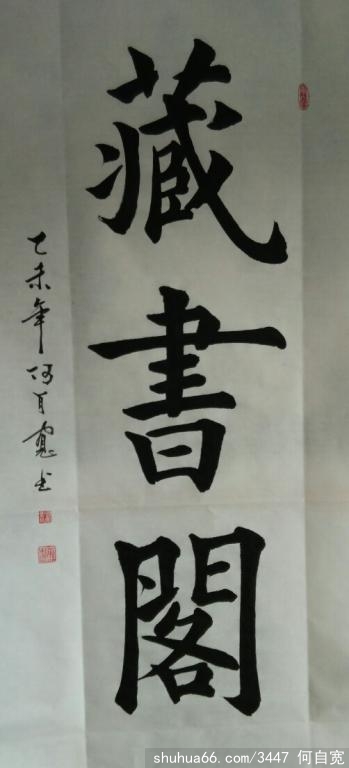 藏書閣
乙未年何自寬书
shuhua66.com/3447 何自宽